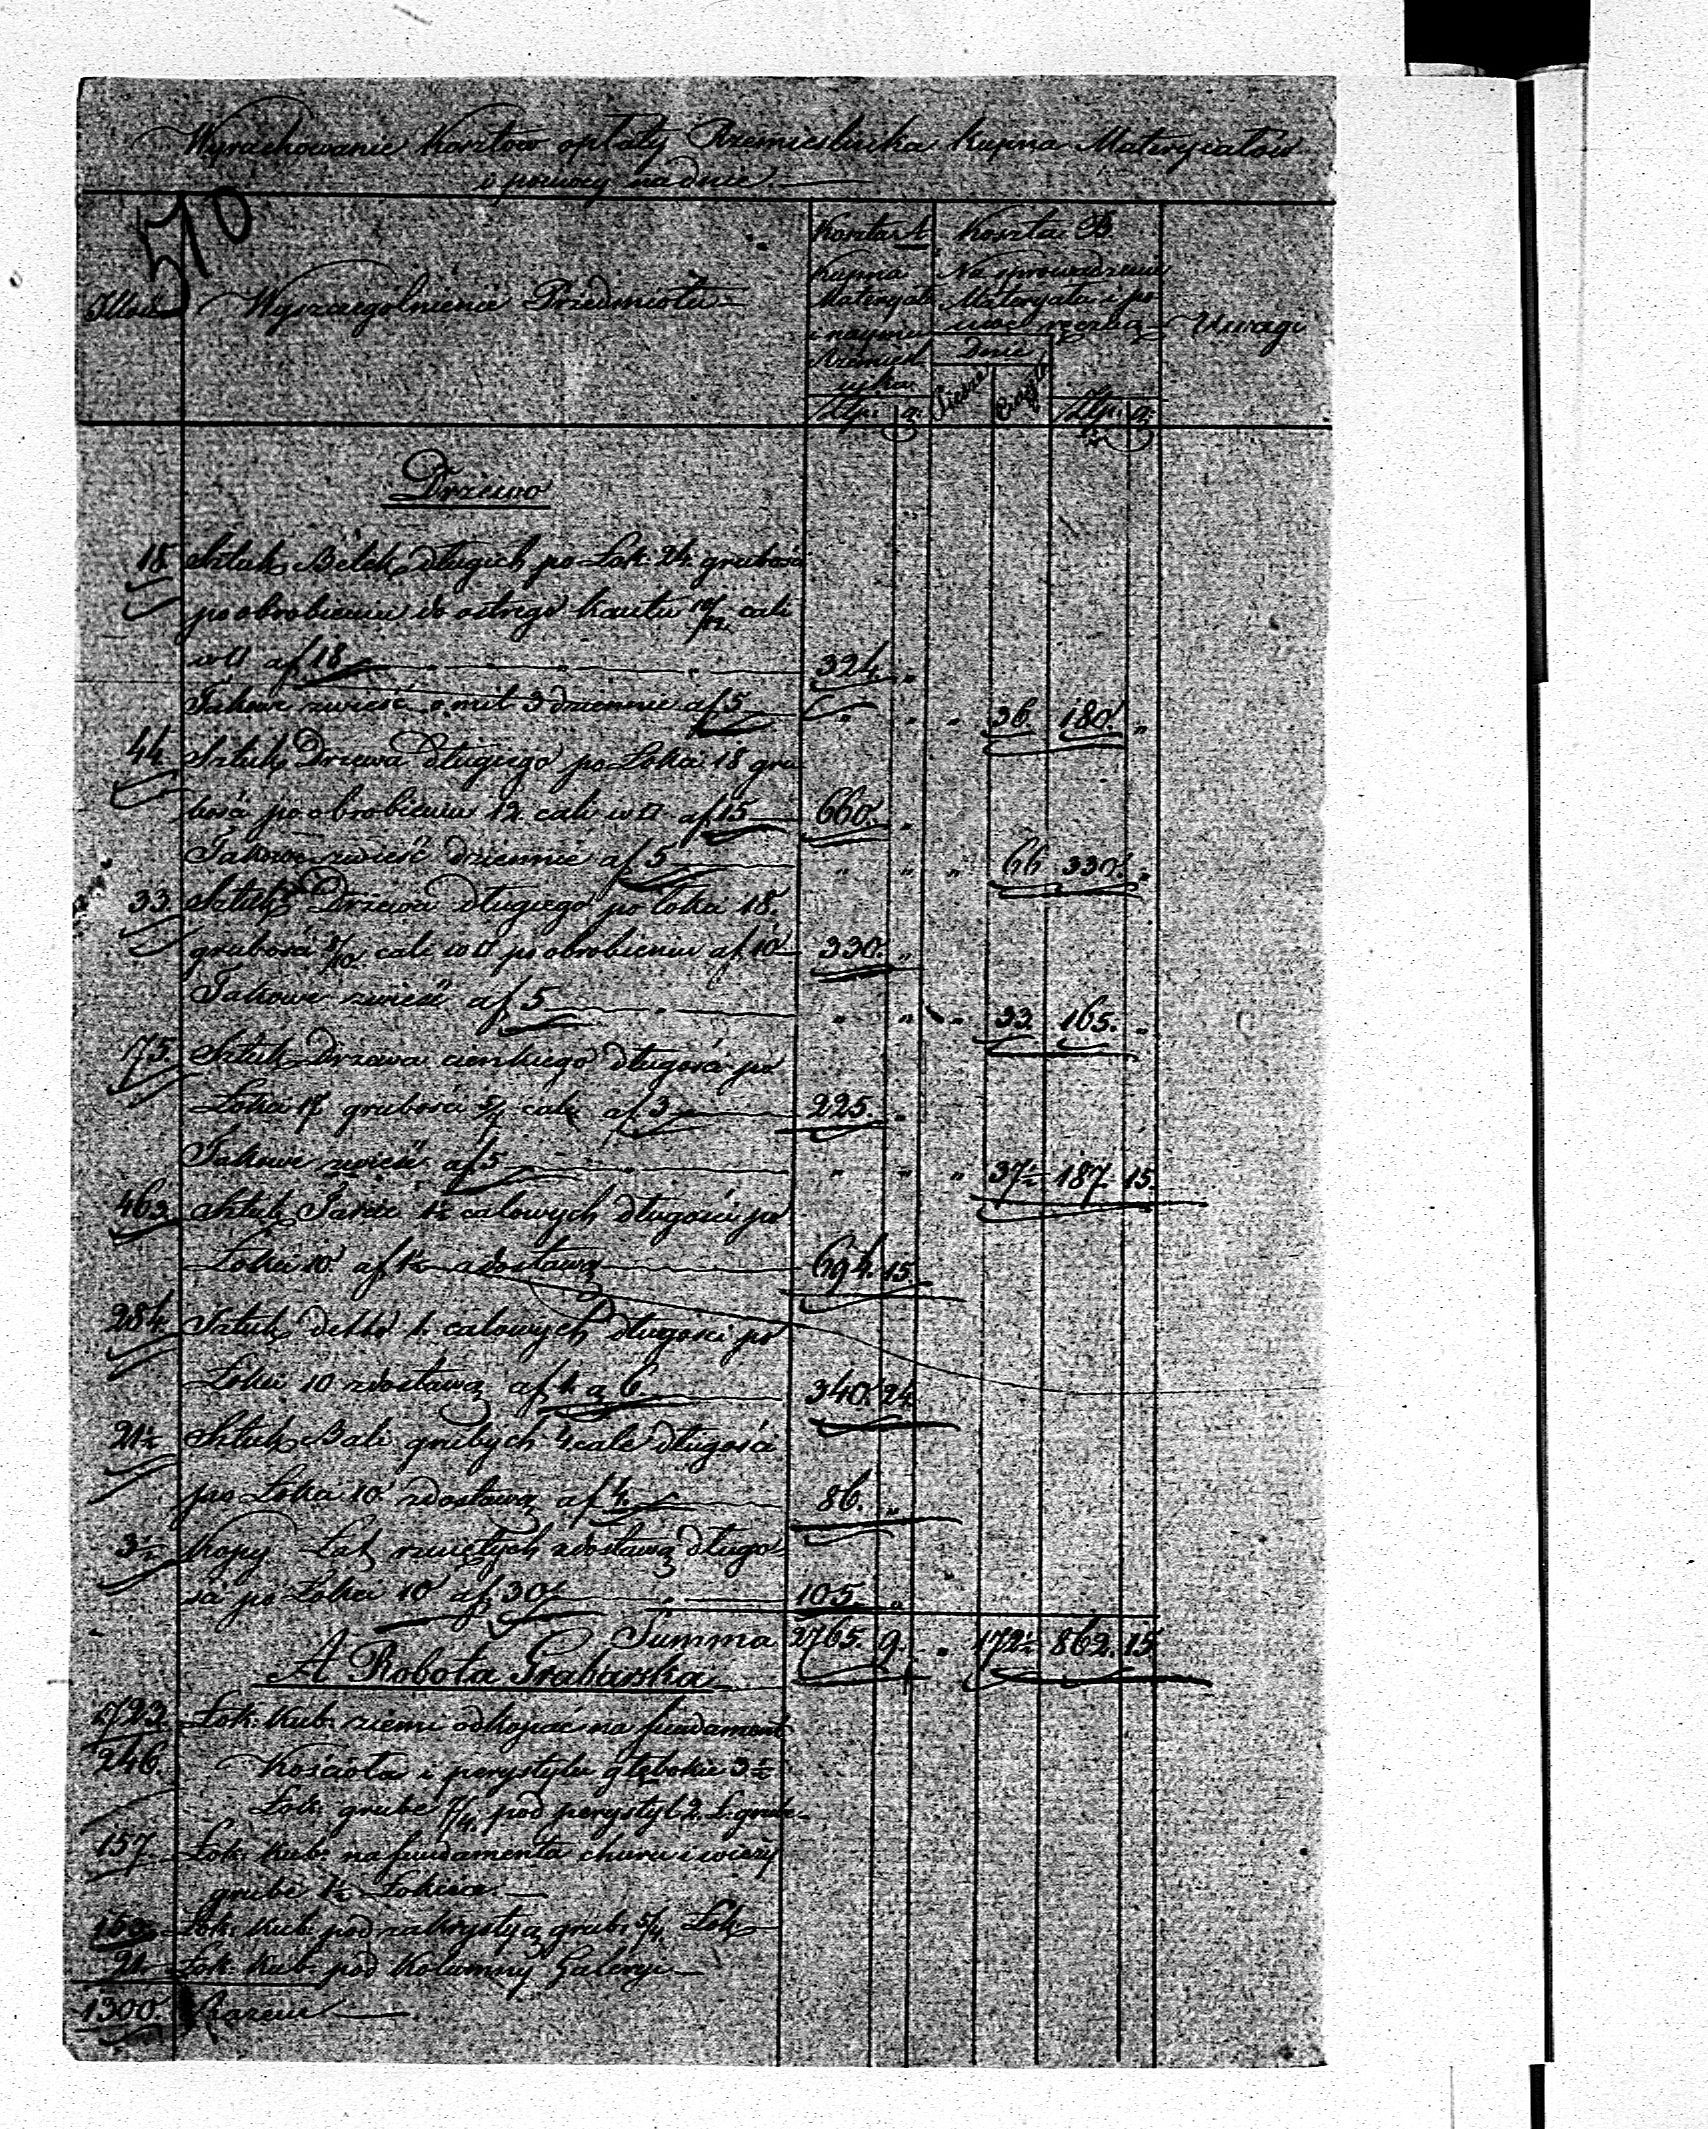 Wyrachowanie Kosztów opłaty Rzemieslnika kupna Materyałów
i pomocy na dnie
510
Ilość
Wyszczególnienie Przedmiotu
Koszta A
kupna
Materyał
i najmu
Rzemieśl
nika
Złp. g.
Koszta B
Na sprowadzenie
Materyału i po
moc ręczną
Dnie
Piesze
Ciągłe
Złp. g.
Uwagi
Drzewo
18 Sztuk Belek długich po Łok. 24. grubości
po obrobieniu do ostrego kantu 10/12 cali
w □ af 18 324. "
Takowe zwieść o mil 3 dziennie af 5 " " " 36. 180. "
44. Sztuk Drzewa długiego po Łokci 18 gru
bości po obrobieniu 12 cali w □ af 15 660. "
Takowe zwieść dziennie af 5 " " " 66 330. "
33. Sztuk Drzewa długiego po łokci 18.
grubości 8/10 cali w □ po obrobieniu af 10 330. "
Takowe zwieść af 5 " " " 33. 165. "
75. Sztuk Drzewa cienkiego długości po
Łokci 17 grubości 5/7 cali af 3 225. "
Takowe zwieść af 5 " " " 37½ 187. 15.
463 Sztuk Tarcic 1½ calowych długości po
Łokci 10 af 1½ z dostawą 694. 15.
284. Sztuk detto 1. calowych długości po
Łokci 10 z dostawą af 1 g 6 340. 24.
21½ Sztuk Bali grubych 4 cale długości
po Łokci 10 z dostawą af 4. 86. "
3½ Kopy Łat rzniętych z dostawą długo
ści po Łokci 10 af 30 105. "
Summa 2765. 9. " 172½ 862. 15
A Robota Grabarska
723. Łok. Kub. ziemi odkopać na fundament
246. Kościoła i perystylu głębokie 3½
Łok. grube 7/4. pod perystyl 2. Ł. grube
157. Łok. Kub. na fundamenta chóru i wieży
grube 1½ Łokcia.
Łok. Kub. pod zakrystyą grub. 5/4 Łok.
Łok. Kub. pod Kolumny Galeryi
1300. Razem